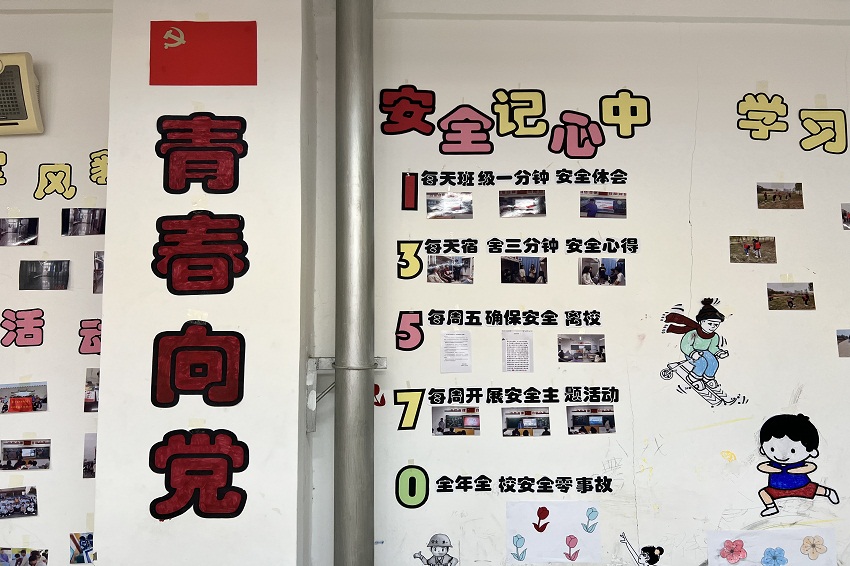 风
活动
青春向党
安全记心中
1 每天班级一分钟 安全体会
3 每天宿舍三分钟 安全心得
5 每周五确保安全离校
7 每周开展安全主题活动
0 全年全校安全零事故
学习